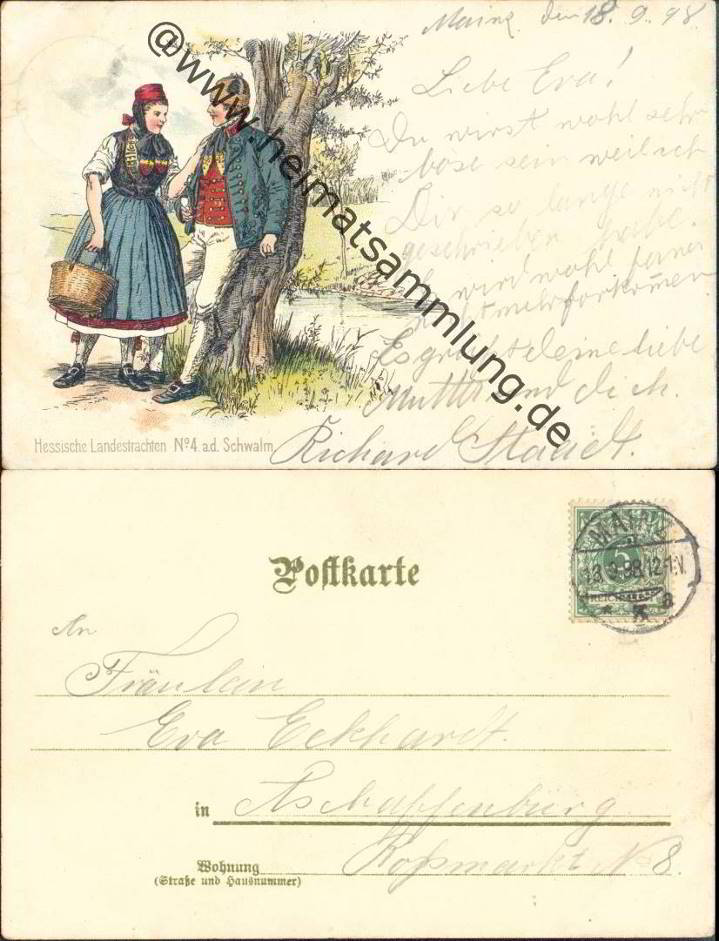 Mainz den 18. 9. 98
Liebe Eva!
Du wirst wohl sehr
böse sein weil ich
Dir so lange nicht
geschrieben habe.
wird wohl ferner
nicht mehr forkom̄en
Es grüßt deine liebe
Mutter und dich.
Richard Staudt.
Hessische Landestrachten Nº4. a.d. Schwalm
@www.heimatsammlung.de
Postkarte
MAINZ
5
13 9.98.12-1.V.
REICHSPOST
* a
An
Fräulein
Eva Eckhardt.
in Aschaffenburg
Wohnung Roßmarkt No 8.
(Straße und Hausnummer)